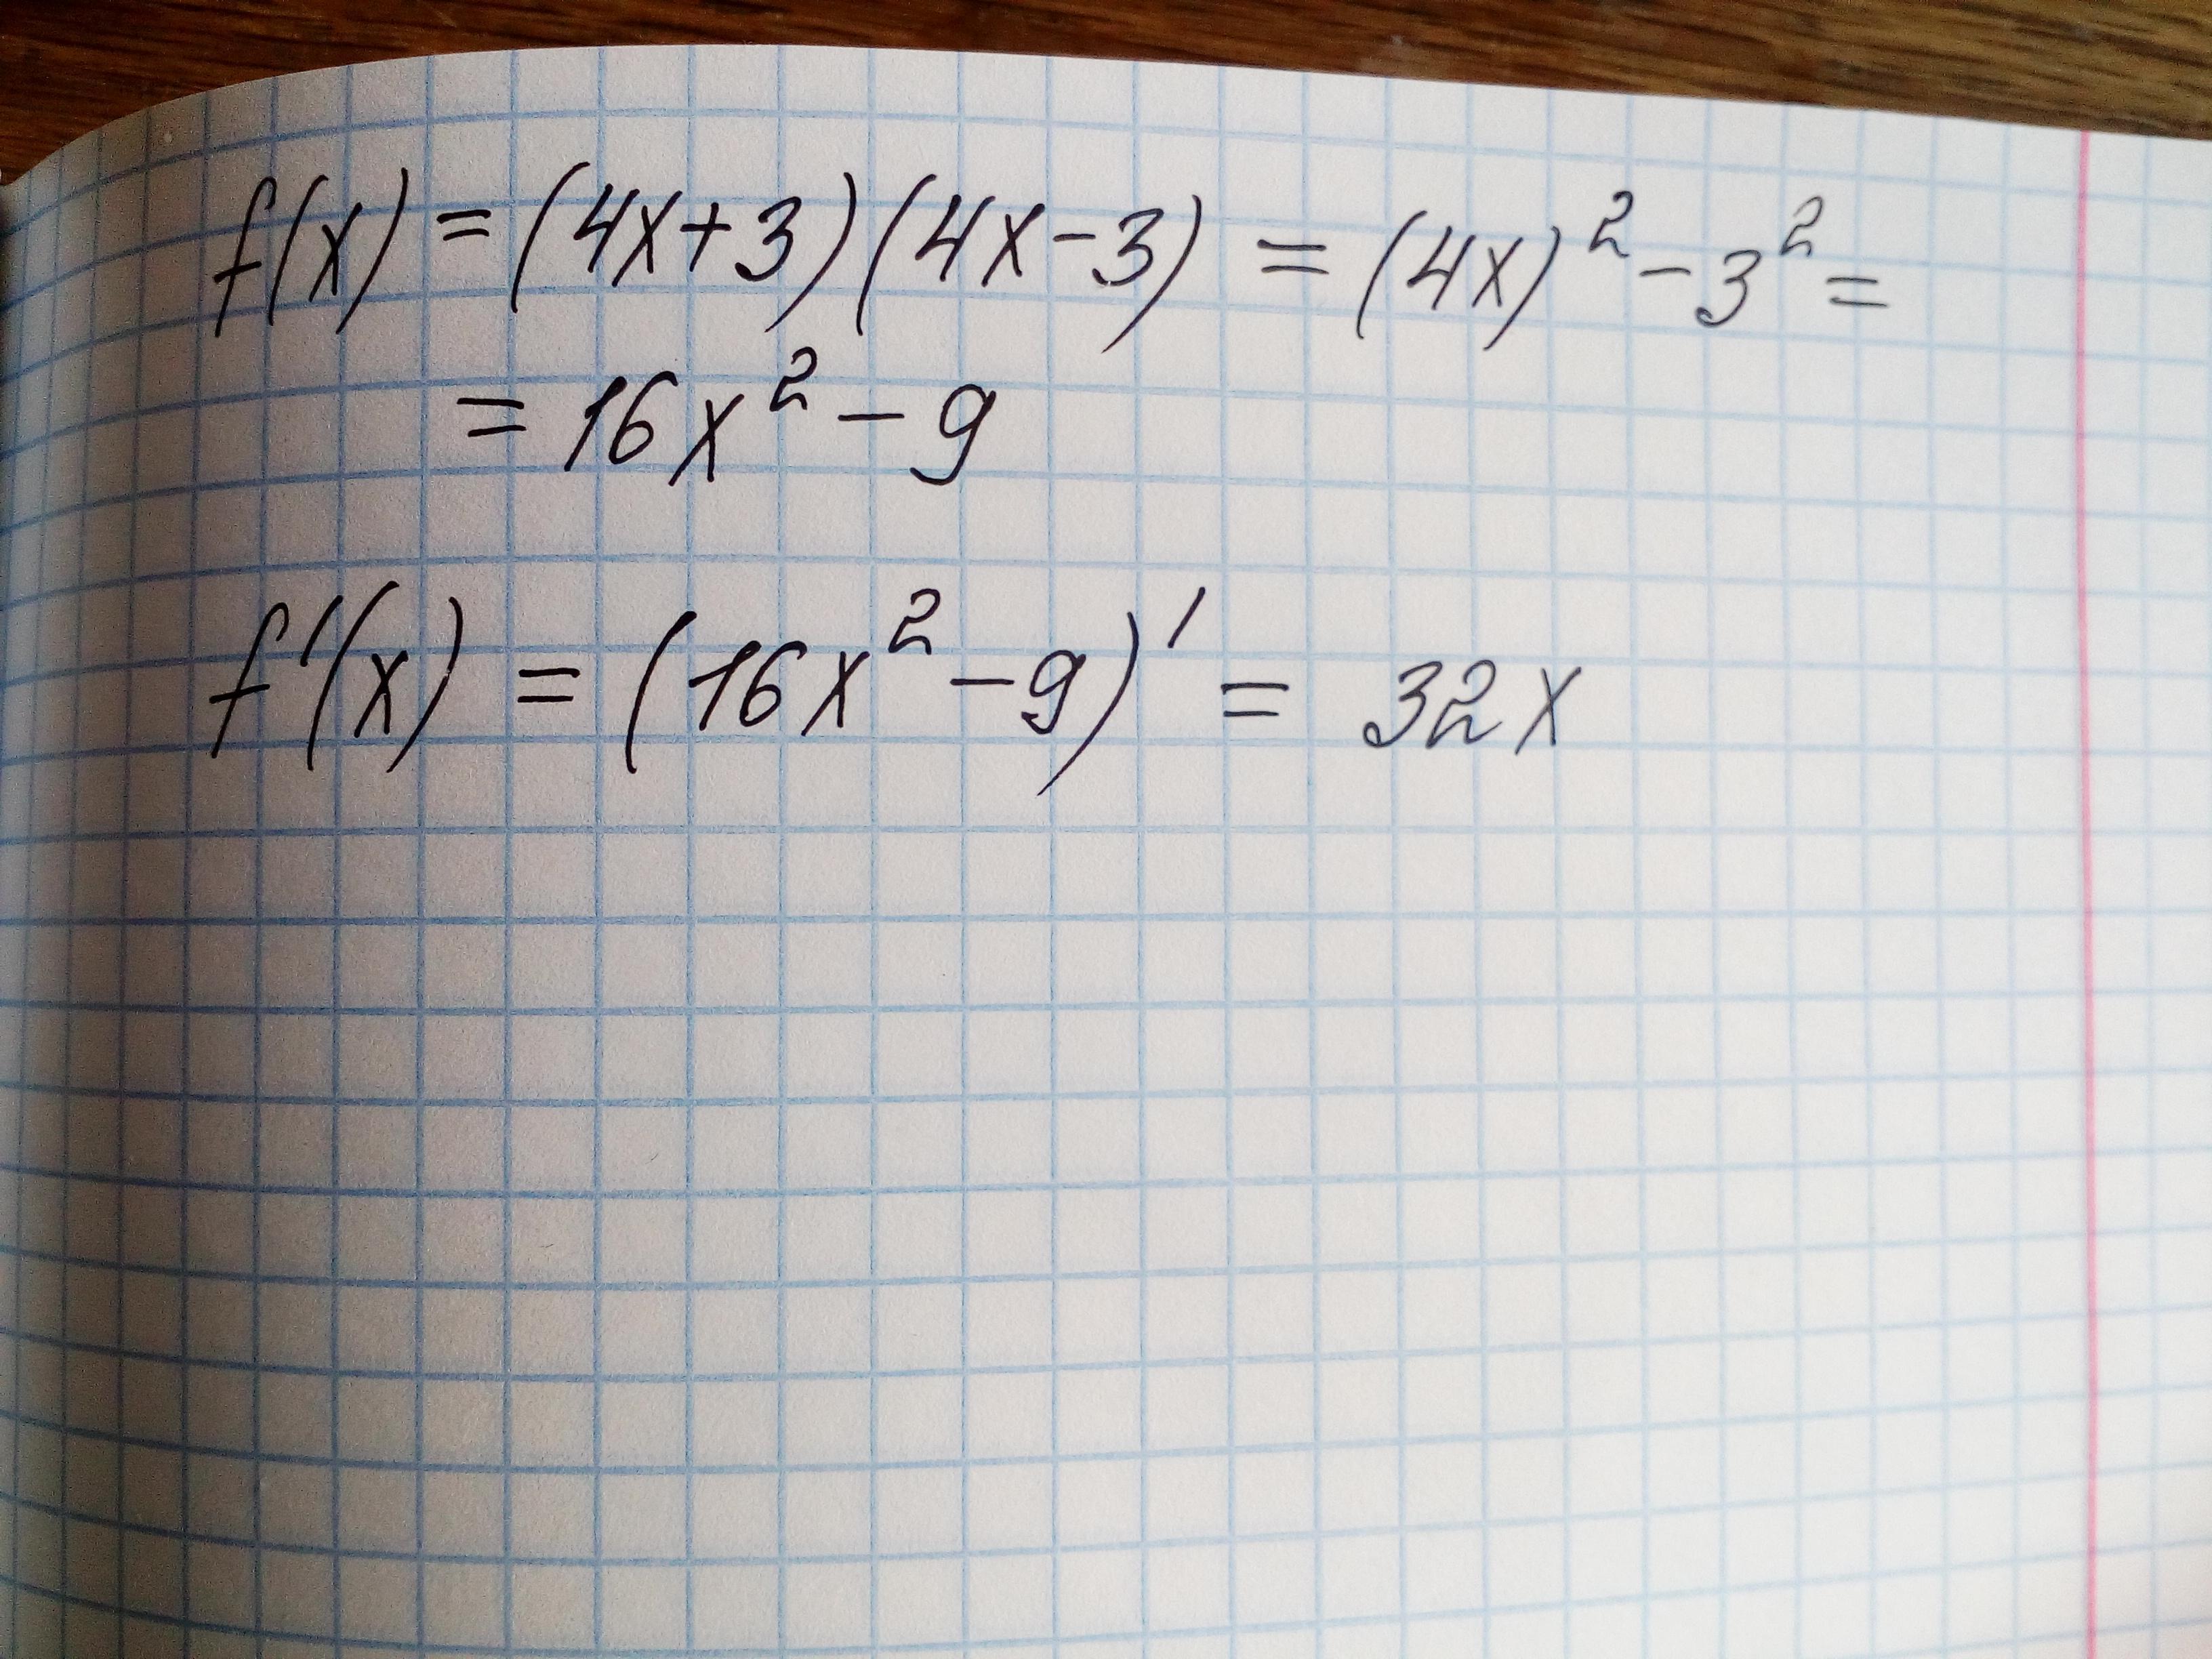 f(x) = (4x+3)(4x-3) = (4x)² - 3² =
= 16x² - 9
f'(x) = (16x² - 9)' = 32x